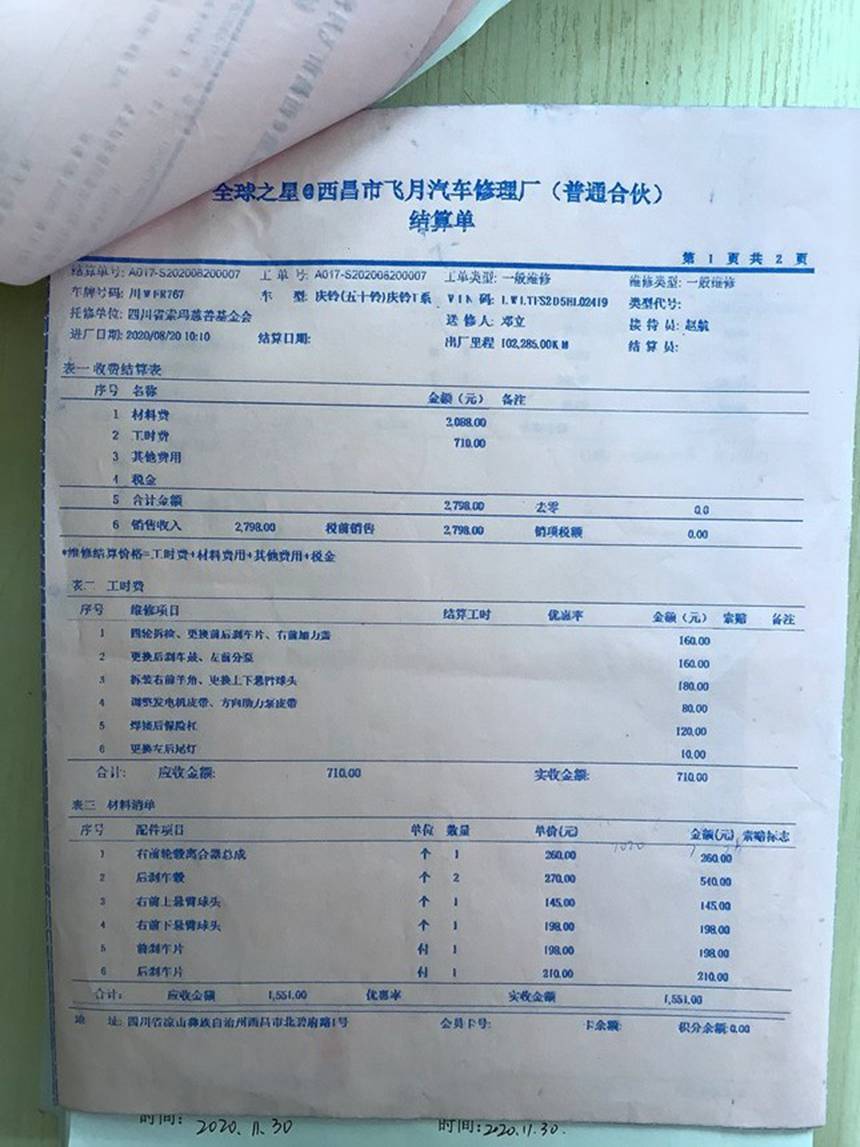 全球之星@西昌市飞月汽车修理厂（普通合伙）
结算单
第 1 页 共 2 页
结算单号: A017-S202008200007 工 单 号: A017-S202008200007 工单类型: 一般维修 维修类型: 一般维修
车牌号码: 川WFR767 车 型: 庆铃(五十铃)庆铃T系 VIN 码: LWLTFS2D5HL02419 类型代号:
托修单位: 四川省索玛慈善基金会 送 修 人: 邓立 接 待 员: 赵航
进厂日期: 2020/08/20 10:10 结算日期: 出厂里程 102,285.00KM 结 算 员:
表一 收费结算表
序号 名称 金额（元） 备注
1 材料费 2,088.00
2 工时费 710.00
3 其他费用
4 税金
5 合计金额 2,798.00 去零 0.0
6 销售收入 2,798.00 税前销售 2,798.00 销项税额 0.00
*维修结算价格=工时费+材料费用+其他费用+税金
表二 工时费
序号 维修项目 结算工时 优惠率 金额（元） 索赔 备注
1 四轮拆检、更换前后刹车片、右前加力盖 160.00
2 更换后刹车鼓、左前分泵 160.00
3 拆装右前羊角、更换上下悬臂球头 180.00
4 调整发电机皮带、方向助力泵皮带 80.00
5 焊矮后保险杠 120.00
6 更换左后尾灯 10.00
合计: 应收金额: 710.00 实收金额: 710.00
表三 材料清单
序号 配件项目 单位 数量 单价(元) 金额(元) 索赔标志
1 右前轮毂离合器总成 个 1 260.00 260.00
2 后刹车毂 个 2 270.00 540.00
3 右前上悬臂球头 个 1 145.00 145.00
4 右前下悬臂球头 个 1 198.00 198.00
5 前刹车片 付 1 198.00 198.00
6 后刹车片 付 1 210.00 210.00
合计: 应收金额 1,551.00 优惠率 实收金额 1,551.00
地 址: 四川省凉山彝族自治州西昌市北碧府路1号 会员卡号: 卡余额: 积分余额:0.00
时间: 2020.11.30 时间:2020.11.30.